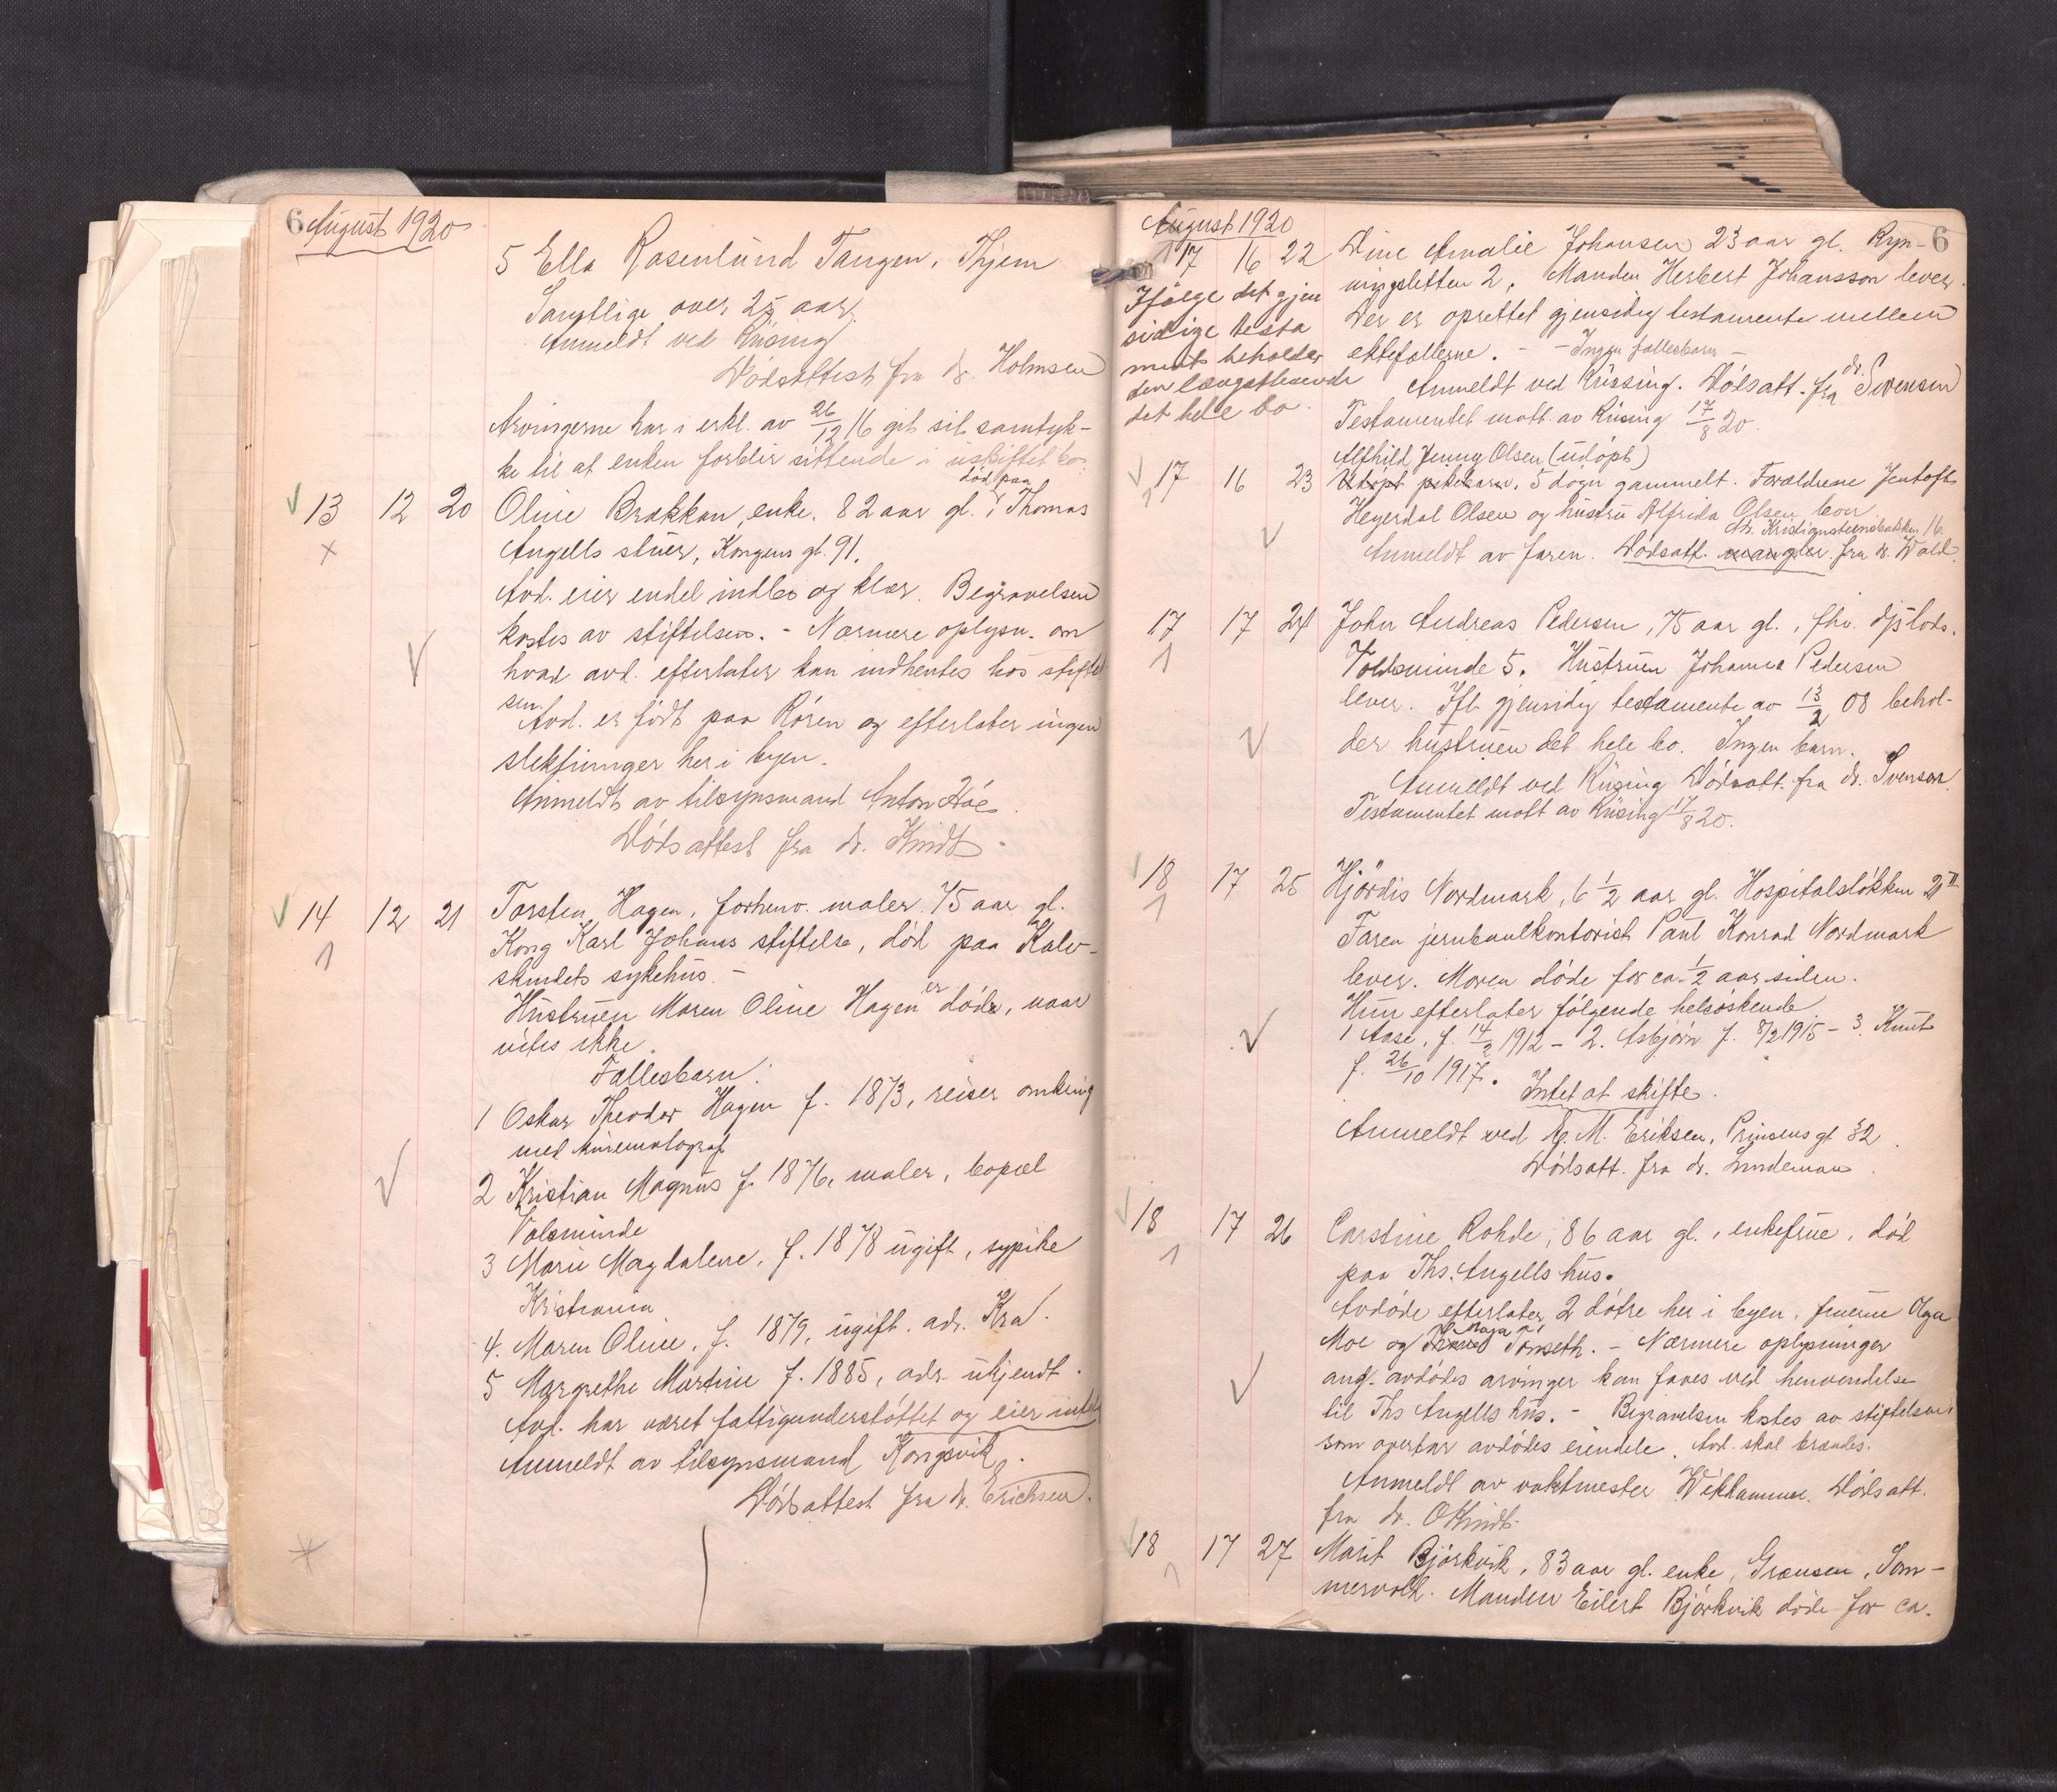 6 August 1920
5 Ella Rosenlund Tangen, Thjem
Samtlige over 25 aar.
Anmeldt ved Rüsing
Dödsattest fra dr. Holmsen
Arvingerne har i erkl. av 26/12 16 git sit samtyk-
ke til at enken forblir sittende i uskiftet bo.
död paa
13 12 20 Oline Brækkan, enke, 82 aar gl. Thomas
Angells stuer, Kongens gt. 91.
Avd. eier endel indbo og klær. Begravelsen
kostes av stiftelsen. - Nærmere oplysn. om
hvad avd. efterlater kan indhentes hos stiftel
sen.
Avd. er födt paa Röros og efterlater ingen
slektninger her i byen.
Anmeldt av tilsynsmand Anton Höe.
Dödsattest fra dr. Kindt.
14 12 21 Torsten Hagen, forhenv. maler 75 aar gl.
Kong Karl Johans stiftelse, död paa Kalv-
skindets sykehus -
Hustruen Maren Oline Hagen er död, naar
vites ikke.
Fællesbarn:
1 Oskar Theodor Hagen f. 1873, reiser omkring
med kinematograf
2 Kristian Magnus f. 1876, maler, bopæl
Volsminde
3 Marie Magdalene, f. 1878 ugift, sypike
Kristiania
4. Maren Oline, f. 1879, ugift. adr. Kra.
5 Margrethe Martine f. 1885, adr. ukjendt.
Avd. har været fattigunderstöttet og eier intet
Anmeldt av tilsynsmand Kongsvik.
Dödsattest fra dr. Erichsen.
August 1920 6
17 16 22 Dine Amalie Johansen 23 aar gl. Ryn-
ningsletten 2, Manden Herbert Johansson lever.
Der er oprettet gjensidig testamente mellem
ektefællerne. - - Ingen fællesbarn -
Ifölge det gjen
sidige testa
ment beholder
den længstlevende
det hele bo.
Anmeldt ved Rüsing. Dödsatt. fra dr. Svensen
Testamentet mott. av Rüsing 17/8 20.
Alfhild Jenny Olsen (udöpt)
17 16 23 Udöpt pikebarn, 5 dögn gammelt. Forældrene Jentoft
Heyerdal Olsen og hustru Alfrida Olsen bor
Kristianstensbakken 16
Anmeldt av faren. Dödsatt. mangler. fra dr. Wold.
17 17 24 John Andreas Pedersen, 75 aar gl., fhv.
Voldsminde 5. Hustruen Johanna Pedersen
lever. Ifl. gjensidig testamente av 13/2 08 behol-
der hustruen det hele bo. Ingen barn.
Anmeldt ved Rüsing Dödsatt. fra dr. Svensen.
Testamentet mott av Rüsing 17/8 20.
18 17 25 Hjördis Nordmark, 6 1/2 aar gl. Hospitalslökken 21 II
Faren jernbanekontorist Paul Konrad Nordmark
lever. Moren döde for ca. 1/2 aar siden.
Hun efterlater fölgende helsöskende
1 Aase, f. 14/2 1912 - 2. Asbjörn f. 8/2 1915 - 3. Knut
f. 26/10 1917.
Intet at skifte.
Anmeldt ved M. Eriksen, Prinsens gt 32.
Dödsatt. fra dr. Lindeman.
18 17 26 Carstine Rohde, 86 aar gl., enkefrue, död
paa Ths. Angells hus.
Avdöde efterlater 2 dötre her i byen, fruerne Olga
Moe og Maja Tönseth. - Nærmere oplysninger
ang. avdödes arvinger kan faaes ved henvendelse
til Ths Angells hus. - Begravelsen kostes av stiftelsen,
som overtar avdödes eiendele. Avd. skal brændes.
Anmeldt av vaktmester Wikhammer. Dödsatt.
fra dr. O Kindt.
18 17 27 Marit Björkvik, 83 aar gl. enke, Grænsen, Som-
mervold. Manden Eilert Björkvik döde for ca.